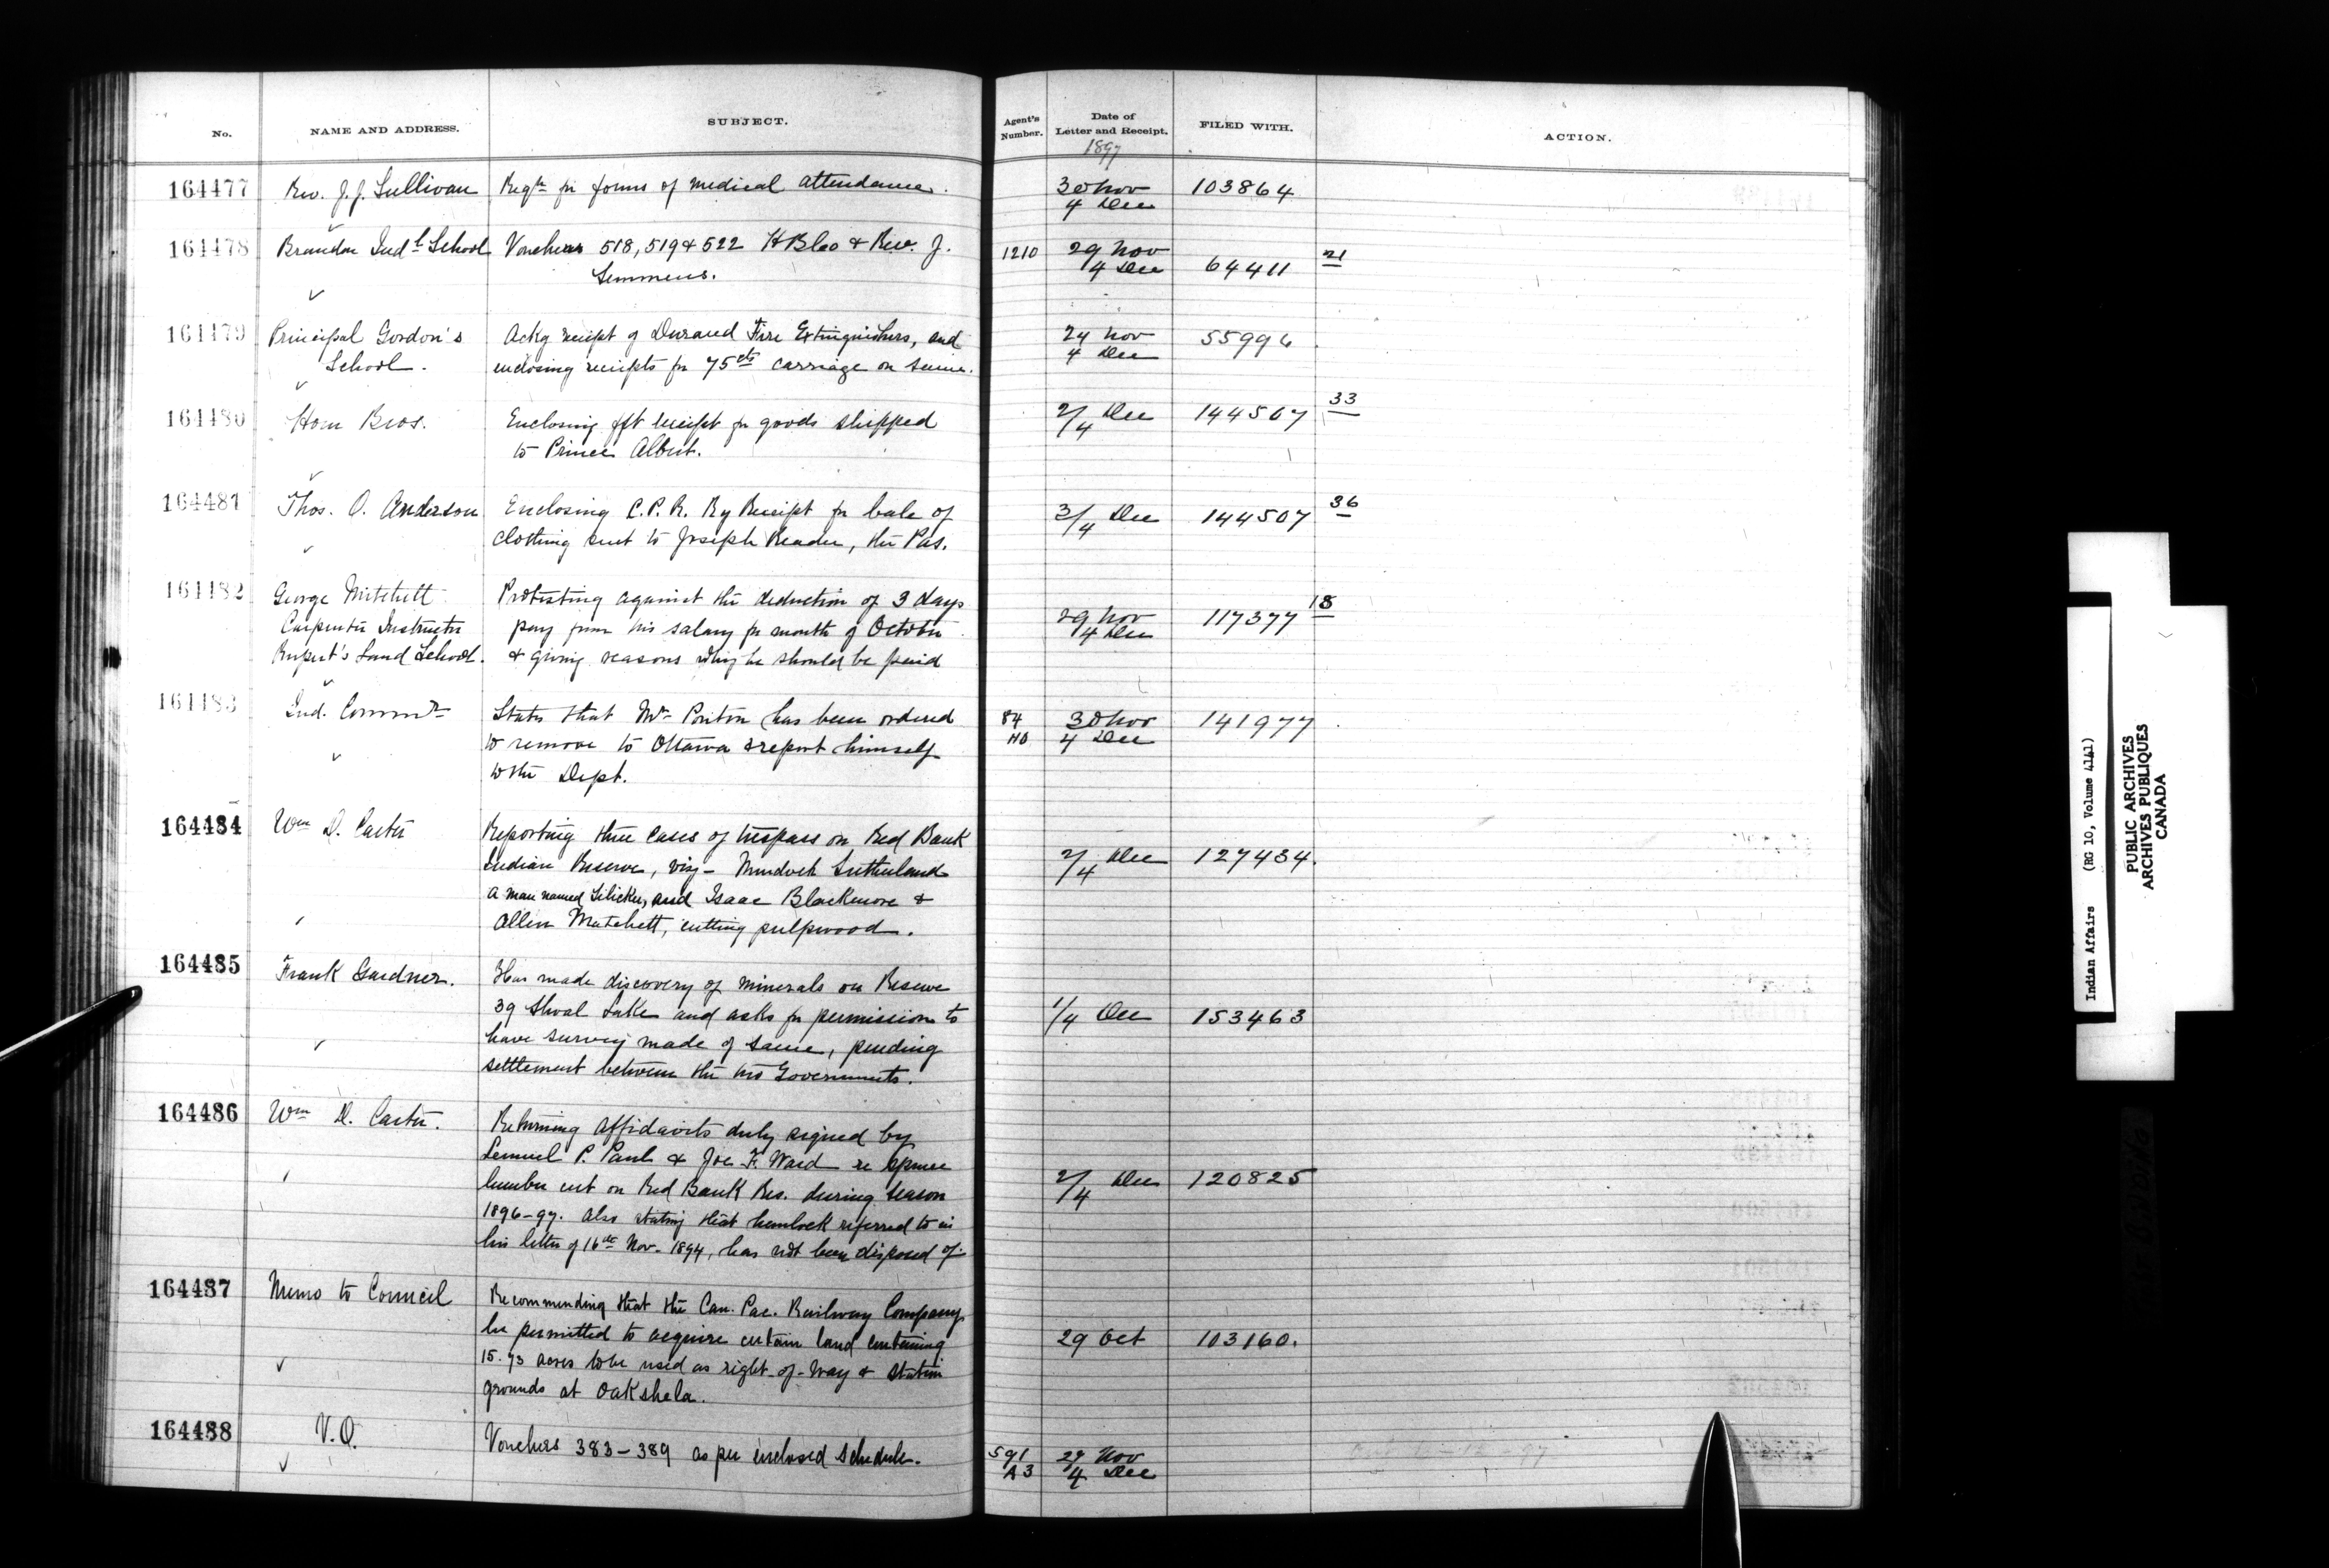 No. NAME AND ADDRESS. SUBJECT. Agent's Number. Date of Letter and Receipt. FILED WITH. ACTION.
1897
164477 Rev. J. J. Sullivan Reqn for forms of medical attendance. 30 Nov 103864
4 Dec
164478 Brandon Indl School Vouchers 518, 519 & 522 HBCo & Rev. J. 1210 29 Nov 21
Semmens. 4 Dec 64411
164479 Principal Gordon's Ackg receipt of Durand Fire Extinguishers, and 24 Nov 55996
School. enclosing receipts for 75cts carriage on same. 4 Dec
164480 Hom Bros. Enclosing frt receipt for goods shipped 2/4 Dec 144507 33
to Prince Albert.
164481 Thos. O. Anderson Enclosing C.P.R. Ry Receipt for bale of 3/4 Dec 144507 36
clothing sent to Joseph Reader, the Pas.
164482 George Mitchell Protesting against the deduction of 3 days
Carpenter Instructor pay from his salary for month of October 29 Nov 117377 18
Rupert's Land School. & giving reasons why he should be paid 4 Dec
164483 Ind. Commr States that Mr Ponton has been ordered 84 30 Nov 141977
to remove to Ottawa & report himself HO 4 Dec
to the Dept.
164484 Wm D. Carter Reporting three cases of trespass on Red Bank
Indian Reserve, viz - Murdoch Sutherland 2/4 Dec 127434.
a man named Silicker, and Isaac Blackmore &
Allen Mutchett, cutting pulpwood.
164485 Frank Gardner. Has made discovery of minerals on Reserve
39 Shoal Lake and asks for permission to 1/4 Dec 153463
have survey made of same, pending
settlement between the two Governments.
164486 Wm D. Carter. Returning Affidavits duly signed by
Lemuel P. Paul & Joe F. Ward re spruce
lumber cut on Red Bank Res. during season 2/4 Dec 120825
1896-97. Also stating that hemlock referred to in
his letter of 16th Nov. 1894, has not been disposed of.
164487 Memo to Council Recommending that the Can. Pac. Railway Company
be permitted to acquire certain land containing 29 Oct 103160.
15.73 acres to be used as right-of-way & station
grounds at Oakshela.
164488 V.O. Vouchers 383-389 as per enclosed schedule. 591 29 Nov
A3 4 Dec
Indian Affairs (RG 10, Volume 4141)
PUBLIC ARCHIVES
ARCHIVES PUBLIQUES
CANADA